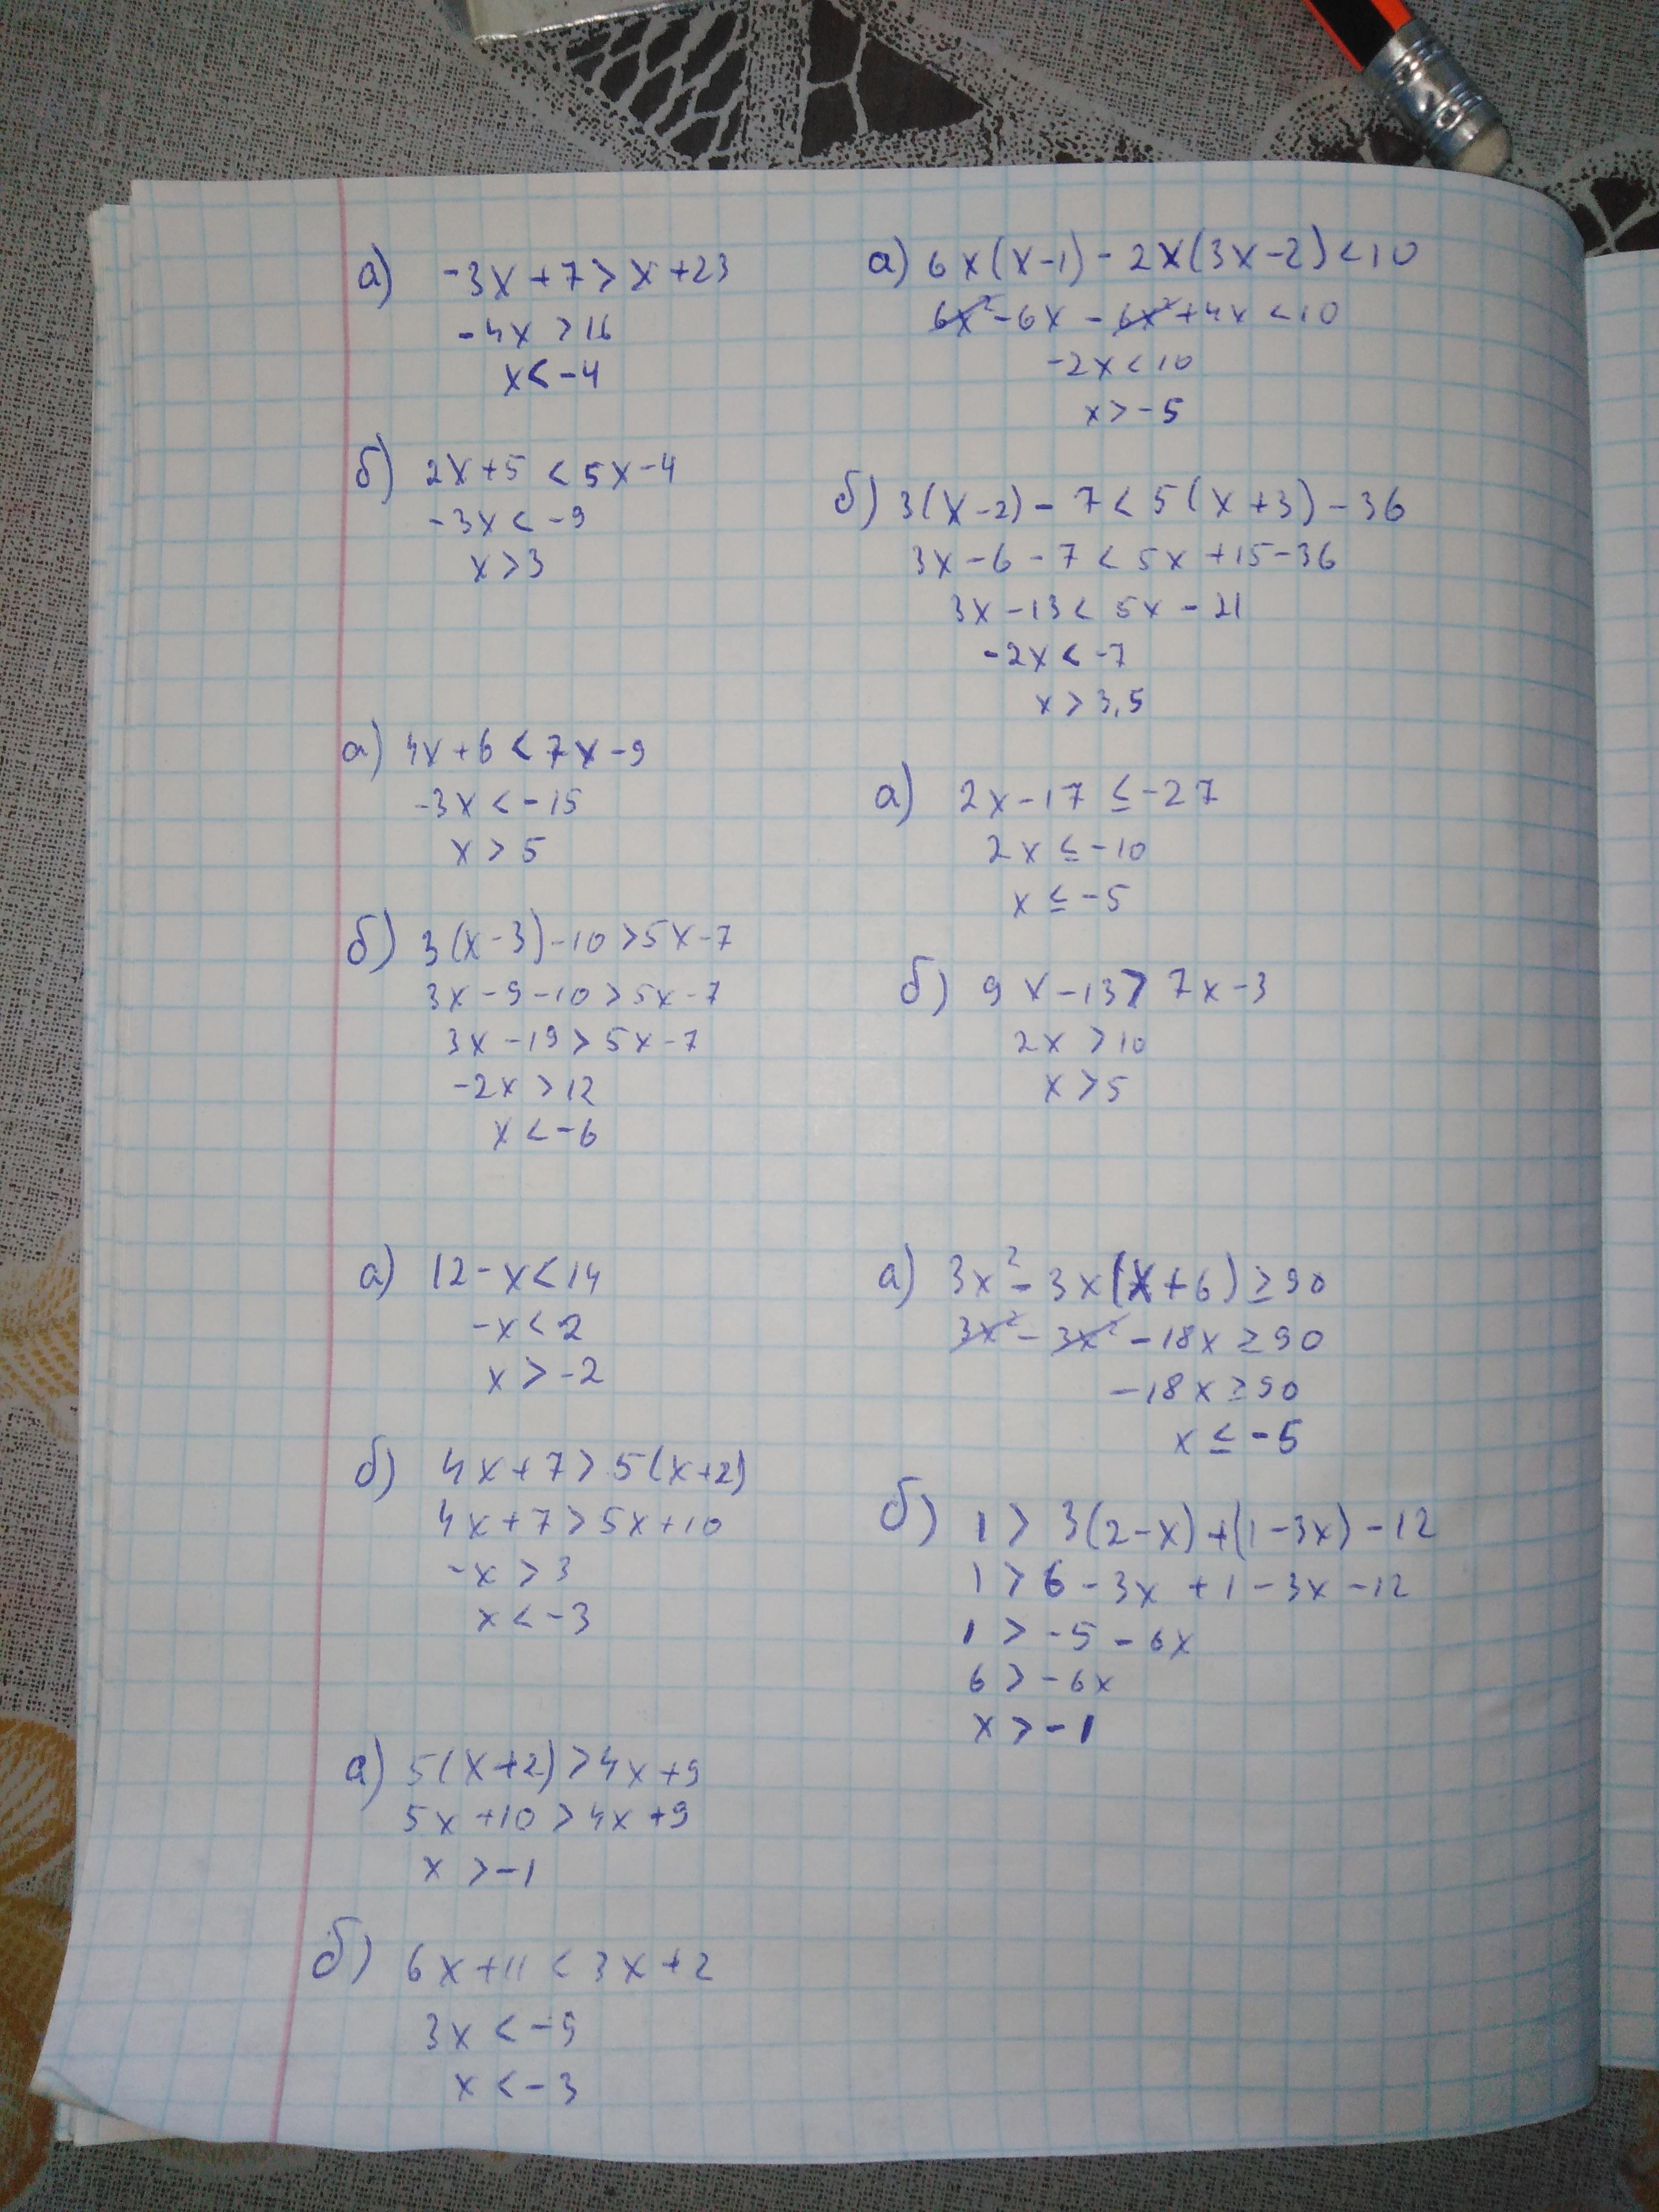 а) -3x+7>x+23
-4x>16
x<-4
б) 2x+5<5x-4
-3x<-9
x>3
а) 4x+6<7x-9
-3x<-15
x>5
б) 3(x-3)-10>5x-7
3x-9-10>5x-7
3x-19>5x-7
-2x>12
x<-6
а) 12-x<14
-x<2
x>-2
б) 4x+7>5(x+2)
4x+7>5x+10
-x>3
x<-3
а) 5(x+2)>4x+9
5x+10>4x+9
x>-1
б) 6x+11<3x+2
3x<-9
x<-3
а) 6x(x-1)-2x(3x-2)<10
6x²-6x-6x²+4x<10
-2x<10
x>-5
б) 3(x-2)-7<5(x+3)-36
3x-6-7<5x+15-36
3x-13<5x-21
-2x<-7
x>3,5
а) 2x-17≤-27
2x≤-10
x≤-5
б) 9x-13>7x-3
2x>10
x>5
а) 3x²-3x(x+6)≥90
3x²-3x²-18x≥90
-18x≥90
x≤-5
б) 1>3(2-x)+(1-3x)-12
1>6-3x+1-3x-12
1>-5-6x
6>-6x
x>-1